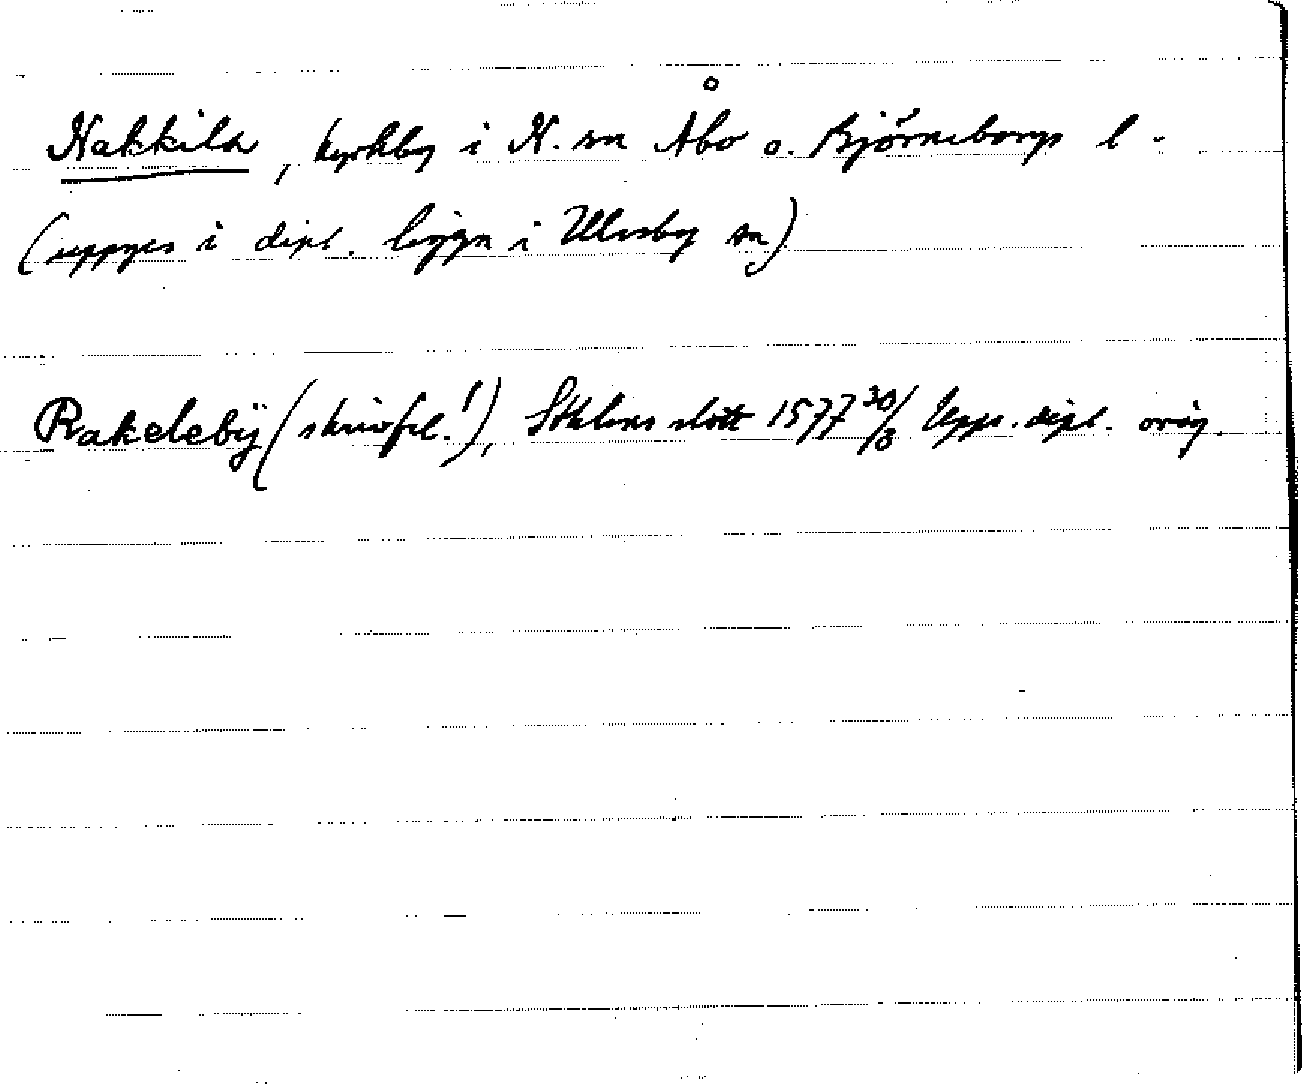 Nakkila, kyrkby i N. sn Åbo o. Björneborgs l.
(uppges i dipl. ligga i Ulvsby sn)
Rakelebÿ (skrivfel!), Sthlms slott 1577 30/8 Upps. dipl. orig.